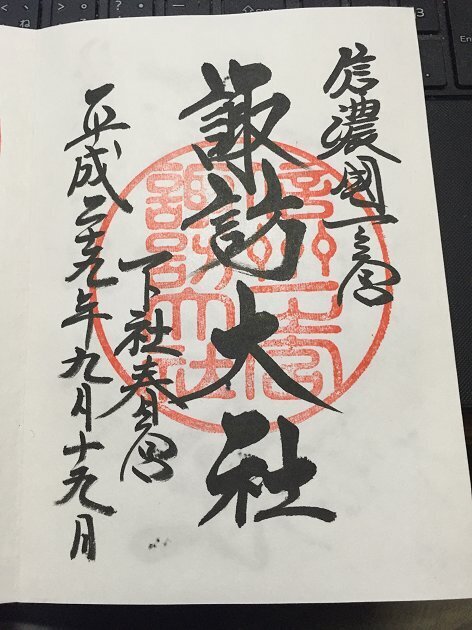 信濃國一之宮
諏訪大社
下社春宮
平成二十九年九月十九日